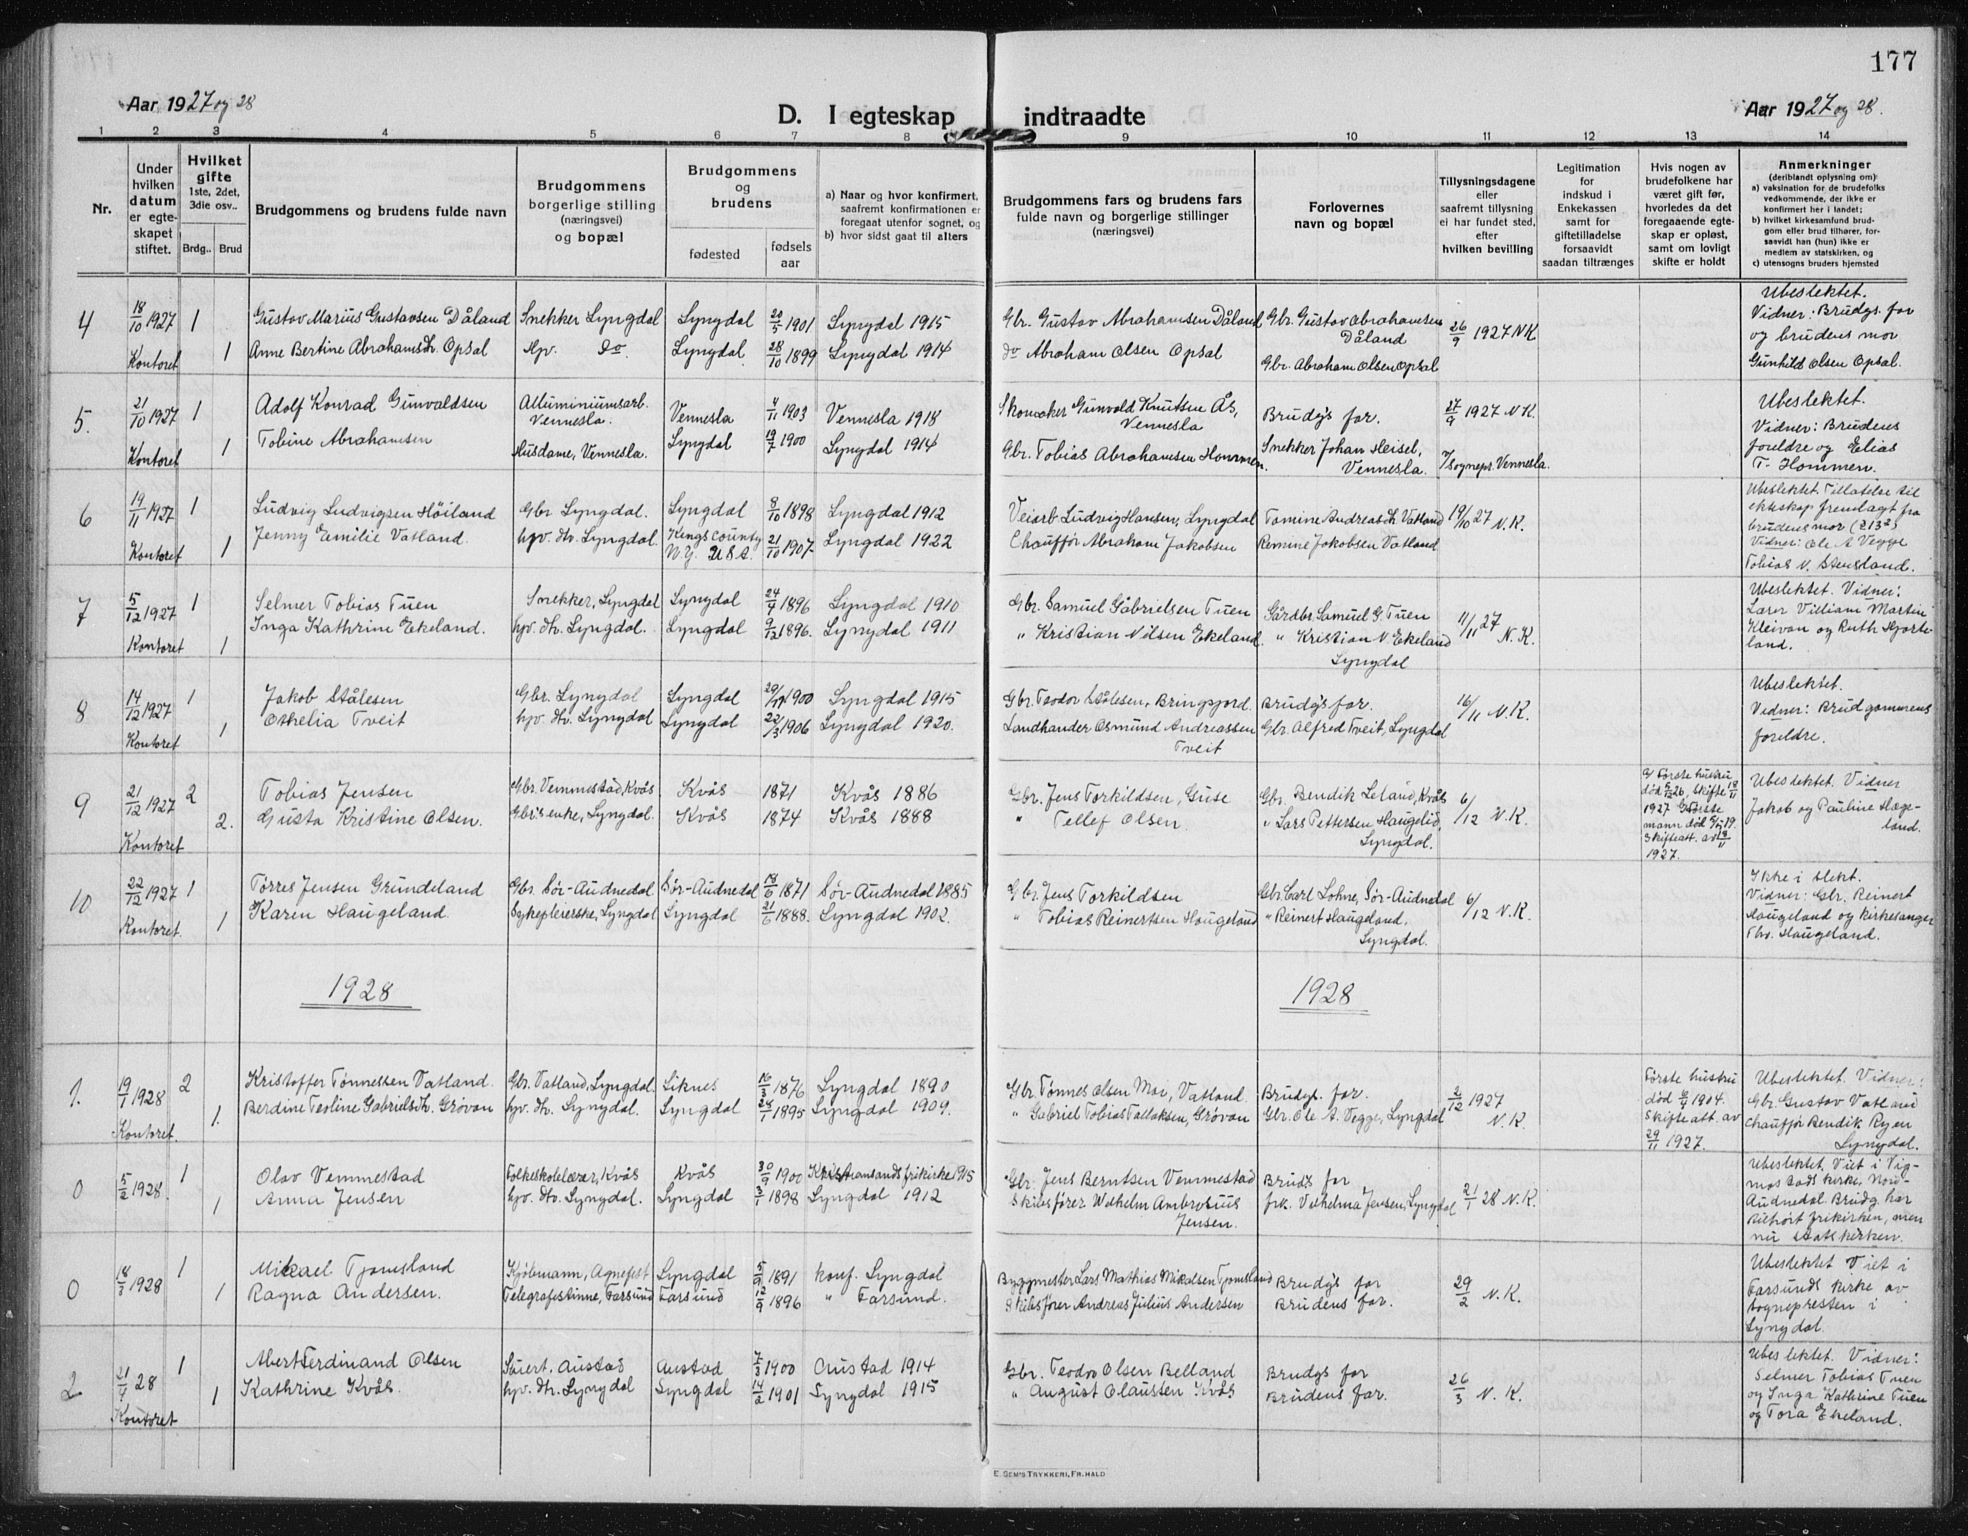 177
Aar 1927 og 28
D. I egteskap indtraadte
Aar 1927 og 28.
1 2 3 4 5 6 7 8 9 10 11 12 13 14
Nr.
Under hvilken datum er egteskapet stiftet.
Hvilket gifte
1ste, 2det, 3die osv..
Brdg.. Brud
Brudgommens og brudens fulde navn
Brudgommens borgerlige stilling (næringsvei) og bopæl
Brudgommens og brudens
fødested
fødsels aar
a) Naar og hvor konfirmert, saafremt konfirmationen er foregaat utenfor sognet, og
b) hvor sidst gaat til alters
Brudgommens fars og brudens fars fulde navn og borgerlige stillinger (næringsvei)
Forlovernes navn og bopæl
Tillysningsdagene eller saafremt tillysning ei har fundet sted, efter hvilken bevilling
Legitimation for indskud i Enkekassen samt for giftetilladelse forsaavidt saadan tiltrænges
Hvis nogen av brudefolkene har været gift før, hvorledes da det foregaaende egteskap er opløst, samt om lovligt skifte er holdt
Anmerkninger
(deriblandt oplysning om)
a) vaksination for de brudefolks vedkommende, der ikke er konfirmert her i landet;
b) hvilket kirkesamfund brudgom eller brud tilhører, forsaavidt han (hun) ikke er medlem av statskirken, og
c) utensogns bruders hjemsted
4 18/10 1927 1 Gustav Marius Gustavsen Dåland Snekker Lyngdal Lyngdal 20/5 1901 Lyngdal 1915 Gbr. Gustav Abrahamsen Dåland Gbr. Gustav Abrahamsen Dåland 26/9 1927 N.K.
Kontoret 1 Anne Bertine Abrahamsdt. Opsal Hpv. do. Lyngdal 28/10 1899 Lyngdal 1914 do Abraham Olsen Opsal Gbr. Abraham Olsen Opsal
Ubeslektet.
Vidner: Brudgs. far
og brudens mor
Gunhild Olsen Opsal.
5. 21/10 1927 1 Adolf Konrad Gunvaldsen Alluminiumsarb. Vennesla. Vennesla 4/11 1903 Vennesla 1918 Skomaker Gunvald Knutsen Ås, Vennesla Brudg's far. 27/9 1927 N.K.
Kontoret 1 Tobine Abrahamsen Husdame, Vennesla. Lyngdal 19/7 1900 Lyngdal 1914 Gbr. Tobias Abrahamsen Hommen. Snekker Johan Heisel, Vennesla. sognepr. Vennesla.
Ubeslektet.
Vidner: Brudens
foreldre og Elias
T. Hommen.
6 19/11 1927 1 Ludvig Ludvigsen Høiland Gbr Lyngdal. Lyngdal 8/10 1898 Lyngdal 1912 Veiarb. Ludvig Hansen, Lyngdal Tomine Andreasdt. Vatland 19/10 27 N.K.
Kontoret 1 Jenny Emilie Vatland. hjv. dt. Lyngdal. Kings County N.Y. U.S.A. 21/10 1907 Lyngdal 1922 Chauffør Abraham Jakobsen Remine Jakobsen Vatland
Ubeslektet. Tillatelse til
ekteskap fremlagt fra
brudens mor (213²)
Vidner: Ole A Vegge
Tobias N. Stensland.
7 5/12 1927 1 Selmer Tobias Tuen Snekker, Lyngdal Lyngdal 24/4 1896 Lyngdal 1910 Gbr. Samuel Gabrielsen Tuen Gårdbr. Samuel G. Tuen 11/11 27 N.K.
Kontoret 1 Inga Kathrine Ekeland. hjv. dt. Lyngdal. Lyngdal 9/12 1896. Lyngdal 1911 " Kristian Nilsen Ekeland. " Kristian N Ekeland Lyngdal
Ubeslektet. Vidner:
Lærer Villiam Martin
Kleivan og Ruth Hjorte-
land.
8 14/12 1927 1 Jakob Stålesen Gbr. Lyngdal Lyngdal 1900 Lyngdal 1915 Gbr. Teodor Stålesen, Bringsjord. Brudg's far. 16/11 N.K.
Kontoret 1 Othelia Tveit hjv. dt. Lyngdal Lyngdal 22/3 1906 Lyngdal 1920. Landhandler Osmund Andreassen Tveit Gbr. Alfred Tveit, Lyngdal
Ubeslektet.
Vidner: Brudgommens
foreldre.
9 21/12 1927 2 Tobias Jensen Gbr. Vemmestad, Kvås Kvås 1871 Kvås 1886 Gbr. Jens Torkildsen, Guse Gbr. Bendik Leland, Kvås 6/12 N.K.
Kontoret 2. Gusta Kristine Olsen. Gbr's enke, Lyngdal. Kvås 1874 Kvås 1888 " Tellef Olsen. " Lars Pettersen Haugelid, Lyngdal.
Første hustru
1927
mann død
skifteatt. av
1927.
Ubeslektet. Vidner
Jakob og Pauline Hæge-
land.
10 22/12 1927 1 Tørres Jensen Grundeland Gbr. Sør-Audnedal Sør-Audnedal 18/6 1871 Sør-Audnedal 1885 Gbr. Jens Torkildsen Gbr. Carl Lohne, Sør-Audnedal 6/12 N.K.
Kontoret. 1 Karen Haugeland. Sykepleierske, Lyngdal Lyngdal 21/6 1888. Lyngdal 1902. " Tobias Reinertsen Haugeland " Reinert Haugeland, Lyngdal.
Ikke i slekt.
Vidner: Gbr. Reinert
Haugeland og kirkesanger
Thv. Haugeland.
1928 1928
1. 19/1 1928 2 Kristoffer Tønnessen Vatland. Gbr. Vatland, Lyngdal. Liknes 16/3 1876 Lyngdal 1890 Gbr. Tønnes Olsen Moi, Vatland. Brudg. far. 2/12 1927 N.K.
Kontoret. 1. Berdine Teoline Gabrielsdt. Grøvan hjv. dt. Lyngdal. Lyngdal 24/1 1895 Lyngdal 1909. " Gabriel Tobias Tallaksen, Grøvan Gbr. Ole A. Vegge, Lyngdal
Første hustru
død 1904.
Skifteatt. av
29/11 1927.
Ubeslektet. Vidner:
Gbr. Gustav Vatland
Chauffør Bendik Ryen
Lyngdal.
0 5/2 1928. 1 Olav Vemmestad Folkeskolelærer, Kvås Kvås 30/9 1900 Kristiansands frikirke 1915 Gbr. Jens Berntsen Vemmestad Brudg far 21/1 28 N.K.
1 Anna Jensen hjv. dt. Lyngdal. Lyngdal 3/1 1898 Lyngdal 1912 Skibsfører Wilhelm Ambrosius Jensen. frk. Vilhelma Jensen, Lyngdal
Ubeslektet. Viet i Vig-
mostads kirke, Nord-
Audnedal. Brudg. har
tilhørt frikirken, men
nu statskirken.
0 18/3 1928 1 Mikael Tjomsland Kjøbmann, Agnefest Lyngdal 5/9 1891 konf. Lyngdal Byggmester Lars Mathias Mikalsen Tjomsland Brudg's far 29/2 N.K.
1 Ragna Andersen. Telegrafistinne, Farsund Farsund 12/9 1896 " Farsund. Skibsfører Andreas Julius Andersen Brudens far.
Ubeslektet Viet i
Farsunds kirke av
sognepresten i
Lyngdal.
2 21/4 28 1 Abert Ferdinand Olsen Austad Austad 7/3 1900 Austad 1914 Gbr. Teodor Olsen Belland Brudg's far 26/3 N.K.
Kontoret 1 Kathrine Kvås. hjv. dt. Lyngdal Lyngdal 14/2 1901 Lyngdal 1915 " August Olausten Kvås Brudens far.
Ubeslektet. Vidner:
Selmer Tobias Tuen
og Inga Kathrine Tuen
og Tora Ekeland.
E. SEM'S TRYKKERI, FR.HALD